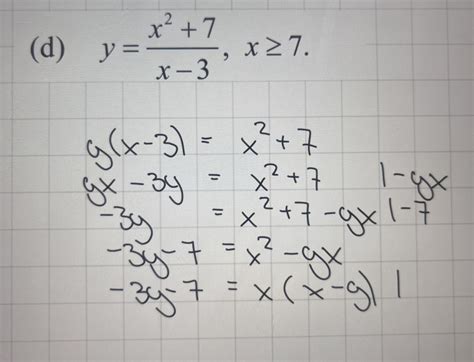 (d) y = \frac{x^2 + 7}{x - 3}, x ≥ 7.
y(x-3) = x² + 7
yx - 3y = x² + 7 |-yx
-3y = x² + 7 - yx |-7
-3y-7 = x² - yx
-3y-7 = x(x-y) |